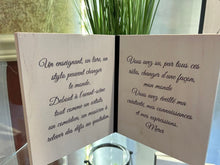 Un enseignant, un livre, un
stylo peuvent changer
le monde.
Debout à l'avant-scène
tout comme un artiste,
un comédien, un musicien à
relever des défis au quotidien.
Vous avez su, par tous ces
rôles, changer d'une façon,
mon monde
Vous avez éveillé ma
curiosité, mes connaissances
et mes expressions.
Merci